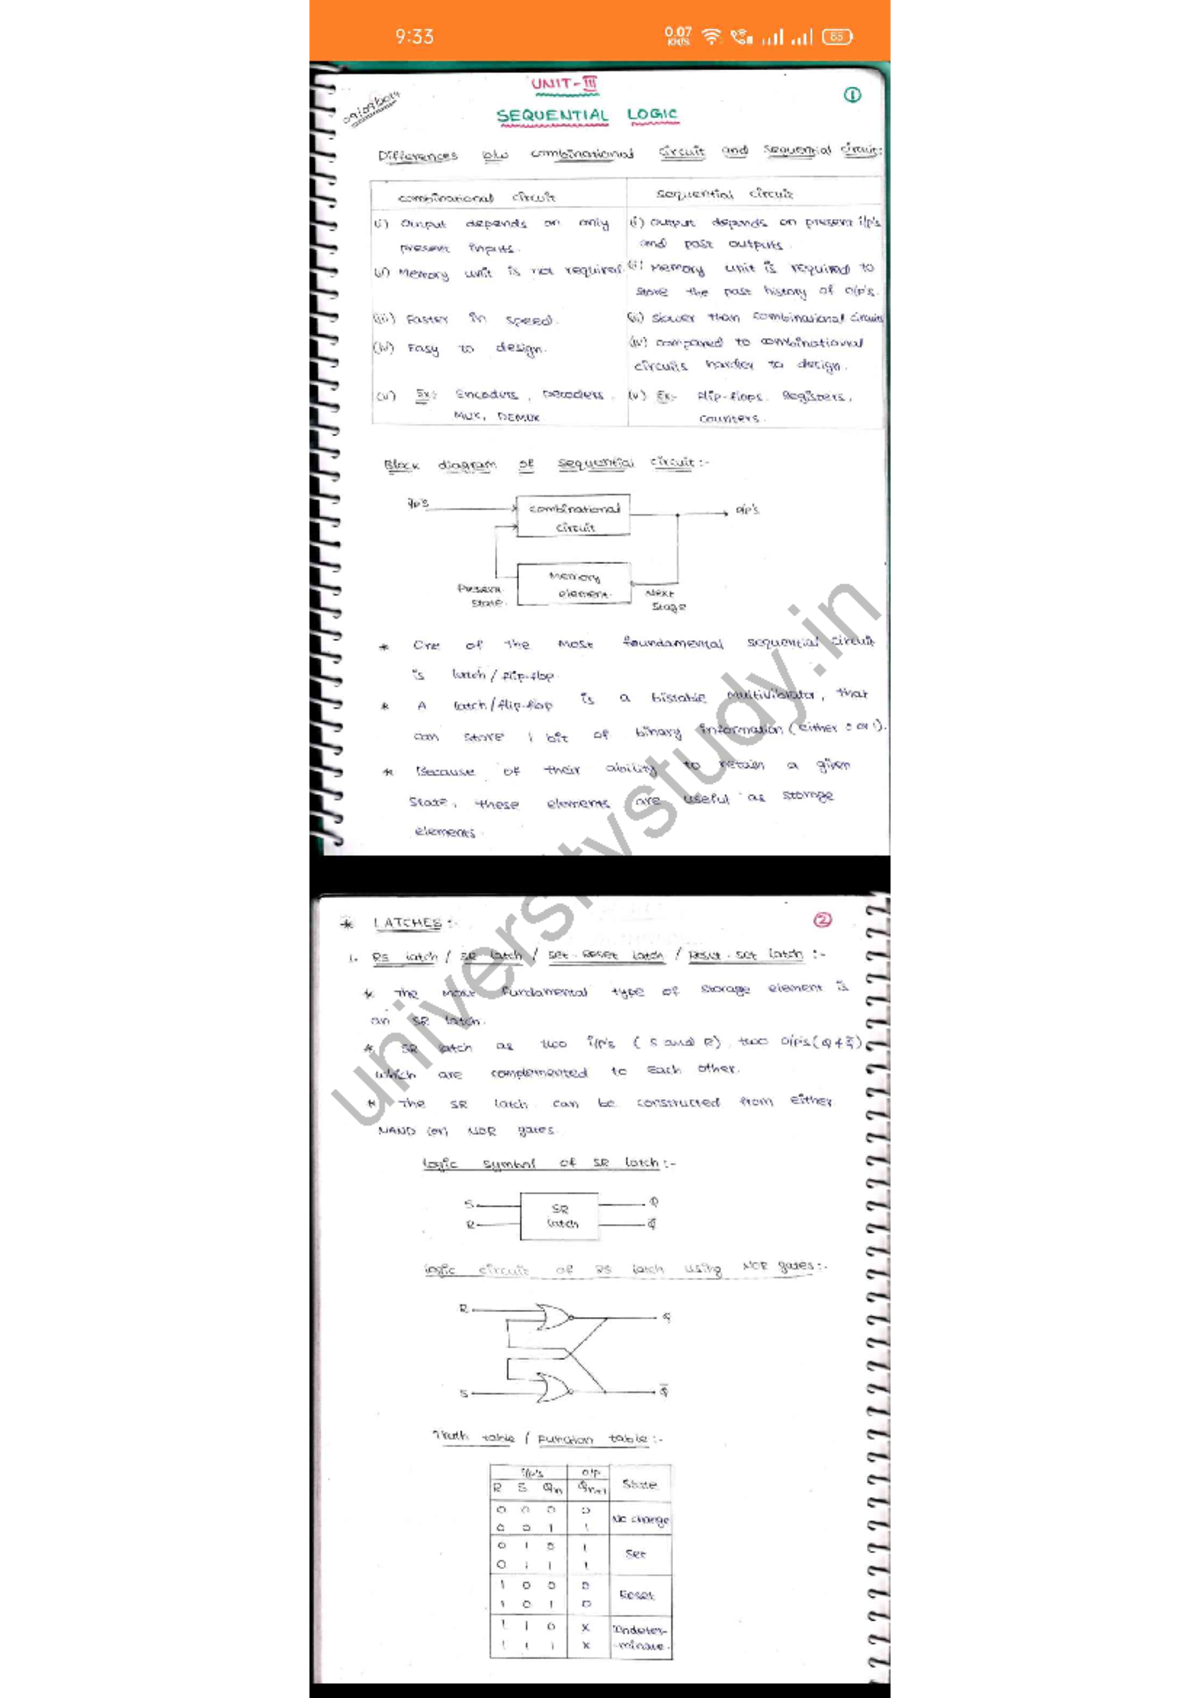 9:33
0.07
KB/S
85
UNIT-III
①
SEQUENTIAL LOGIC
Differences b/w combinational circuit and sequential circuit:
combinational circuit
sequential circuit
(i) Output depends on only
present inputs.
(ii) Memory unit is not required.
(iii) Faster in speed.
(iv) Easy to design.
(v) Ex:- Encoders, Decoders,
MUX, DEMUX
(i) Output depends on present i/p's
and past outputs.
(ii) Memory unit is required to
store the past history of o/p's.
(iii) Slower than combinational circuits
(iv) compared to combinational
circuits harder to design.
(v) Ex:- Flip-flops, Registers,
counters.
Block diagram of sequential circuit:-
i/p's
combinational
circuit
o/p's
Memory
element.
Present
state.
Next
Stage
* One of the most foundamental sequential circuit
is latch/flip-flop.
* A latch/flip-flop is a bistable multivibrator, that
can store 1 bit of binary information (either 0 or 1).
* Because of their ability to retain a given
state, these elements are useful as storage
elements.
universitystudy.in
* LATCHES:-
②
1. RS latch / SR latch / Set-Reset latch / Reset-set latch:-
* The most fundamental type of storage element is
an SR latch.
* SR latch as two i/p's (S and R), two o/p's (Q & Q̅)
which are complemented to each other.
* The SR latch can be constructed from either
NAND (or) NOR gates.
Logic symbol of SR latch:-
S
R
SR
latch
Q
Q̅
Logic circuit of RS latch using NOR gates:-
R
Q
S
Q̅
Truth table / Function table:-
i/p's o/p State
R S Qn Qn+1
0 0 0 0 No change
0 0 1 1
0 1 0 1 Set
0 1 1 1
1 0 0 0 Reset
1 0 1 0
1 1 0 X Indeter-
1 1 1 X -minate.